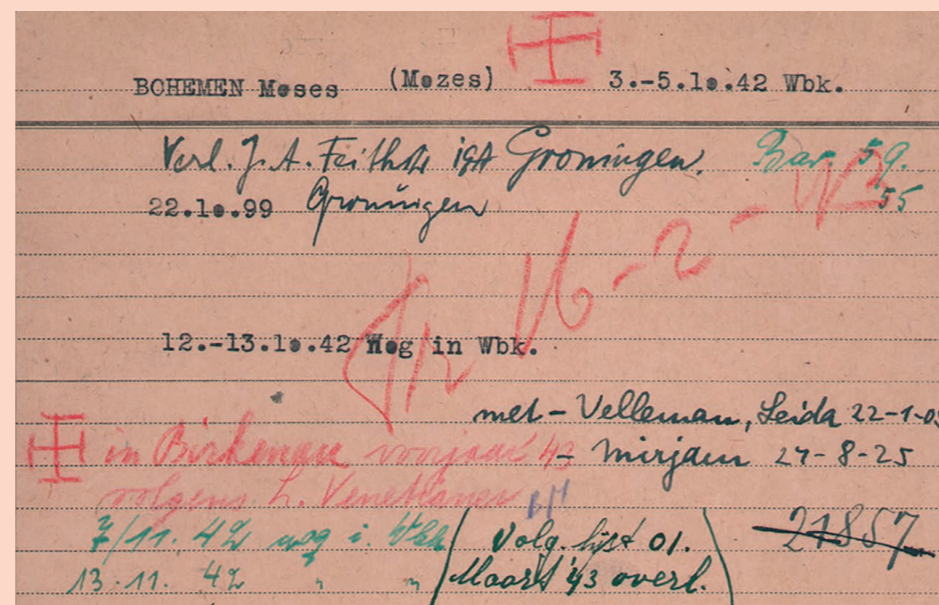 BOHEMEN Moses (Mozes) 3.-5.10.42 Wbk.
Verl. J. A. Feithstr Groningen. Bar 59.
55
22.10.99 Groningen
16-2-
12.-13.10.42 Nog in Wbk.
met - Velleman, Leida 22-1-03
in Birkenau voorjaar 43 - Mirjam 27-8-25
volgens L. Venetianer
7/11. 42 nog i. Wbk Volg. lijst 01. 21857
13.11. 42 " " Maart '43 overl.